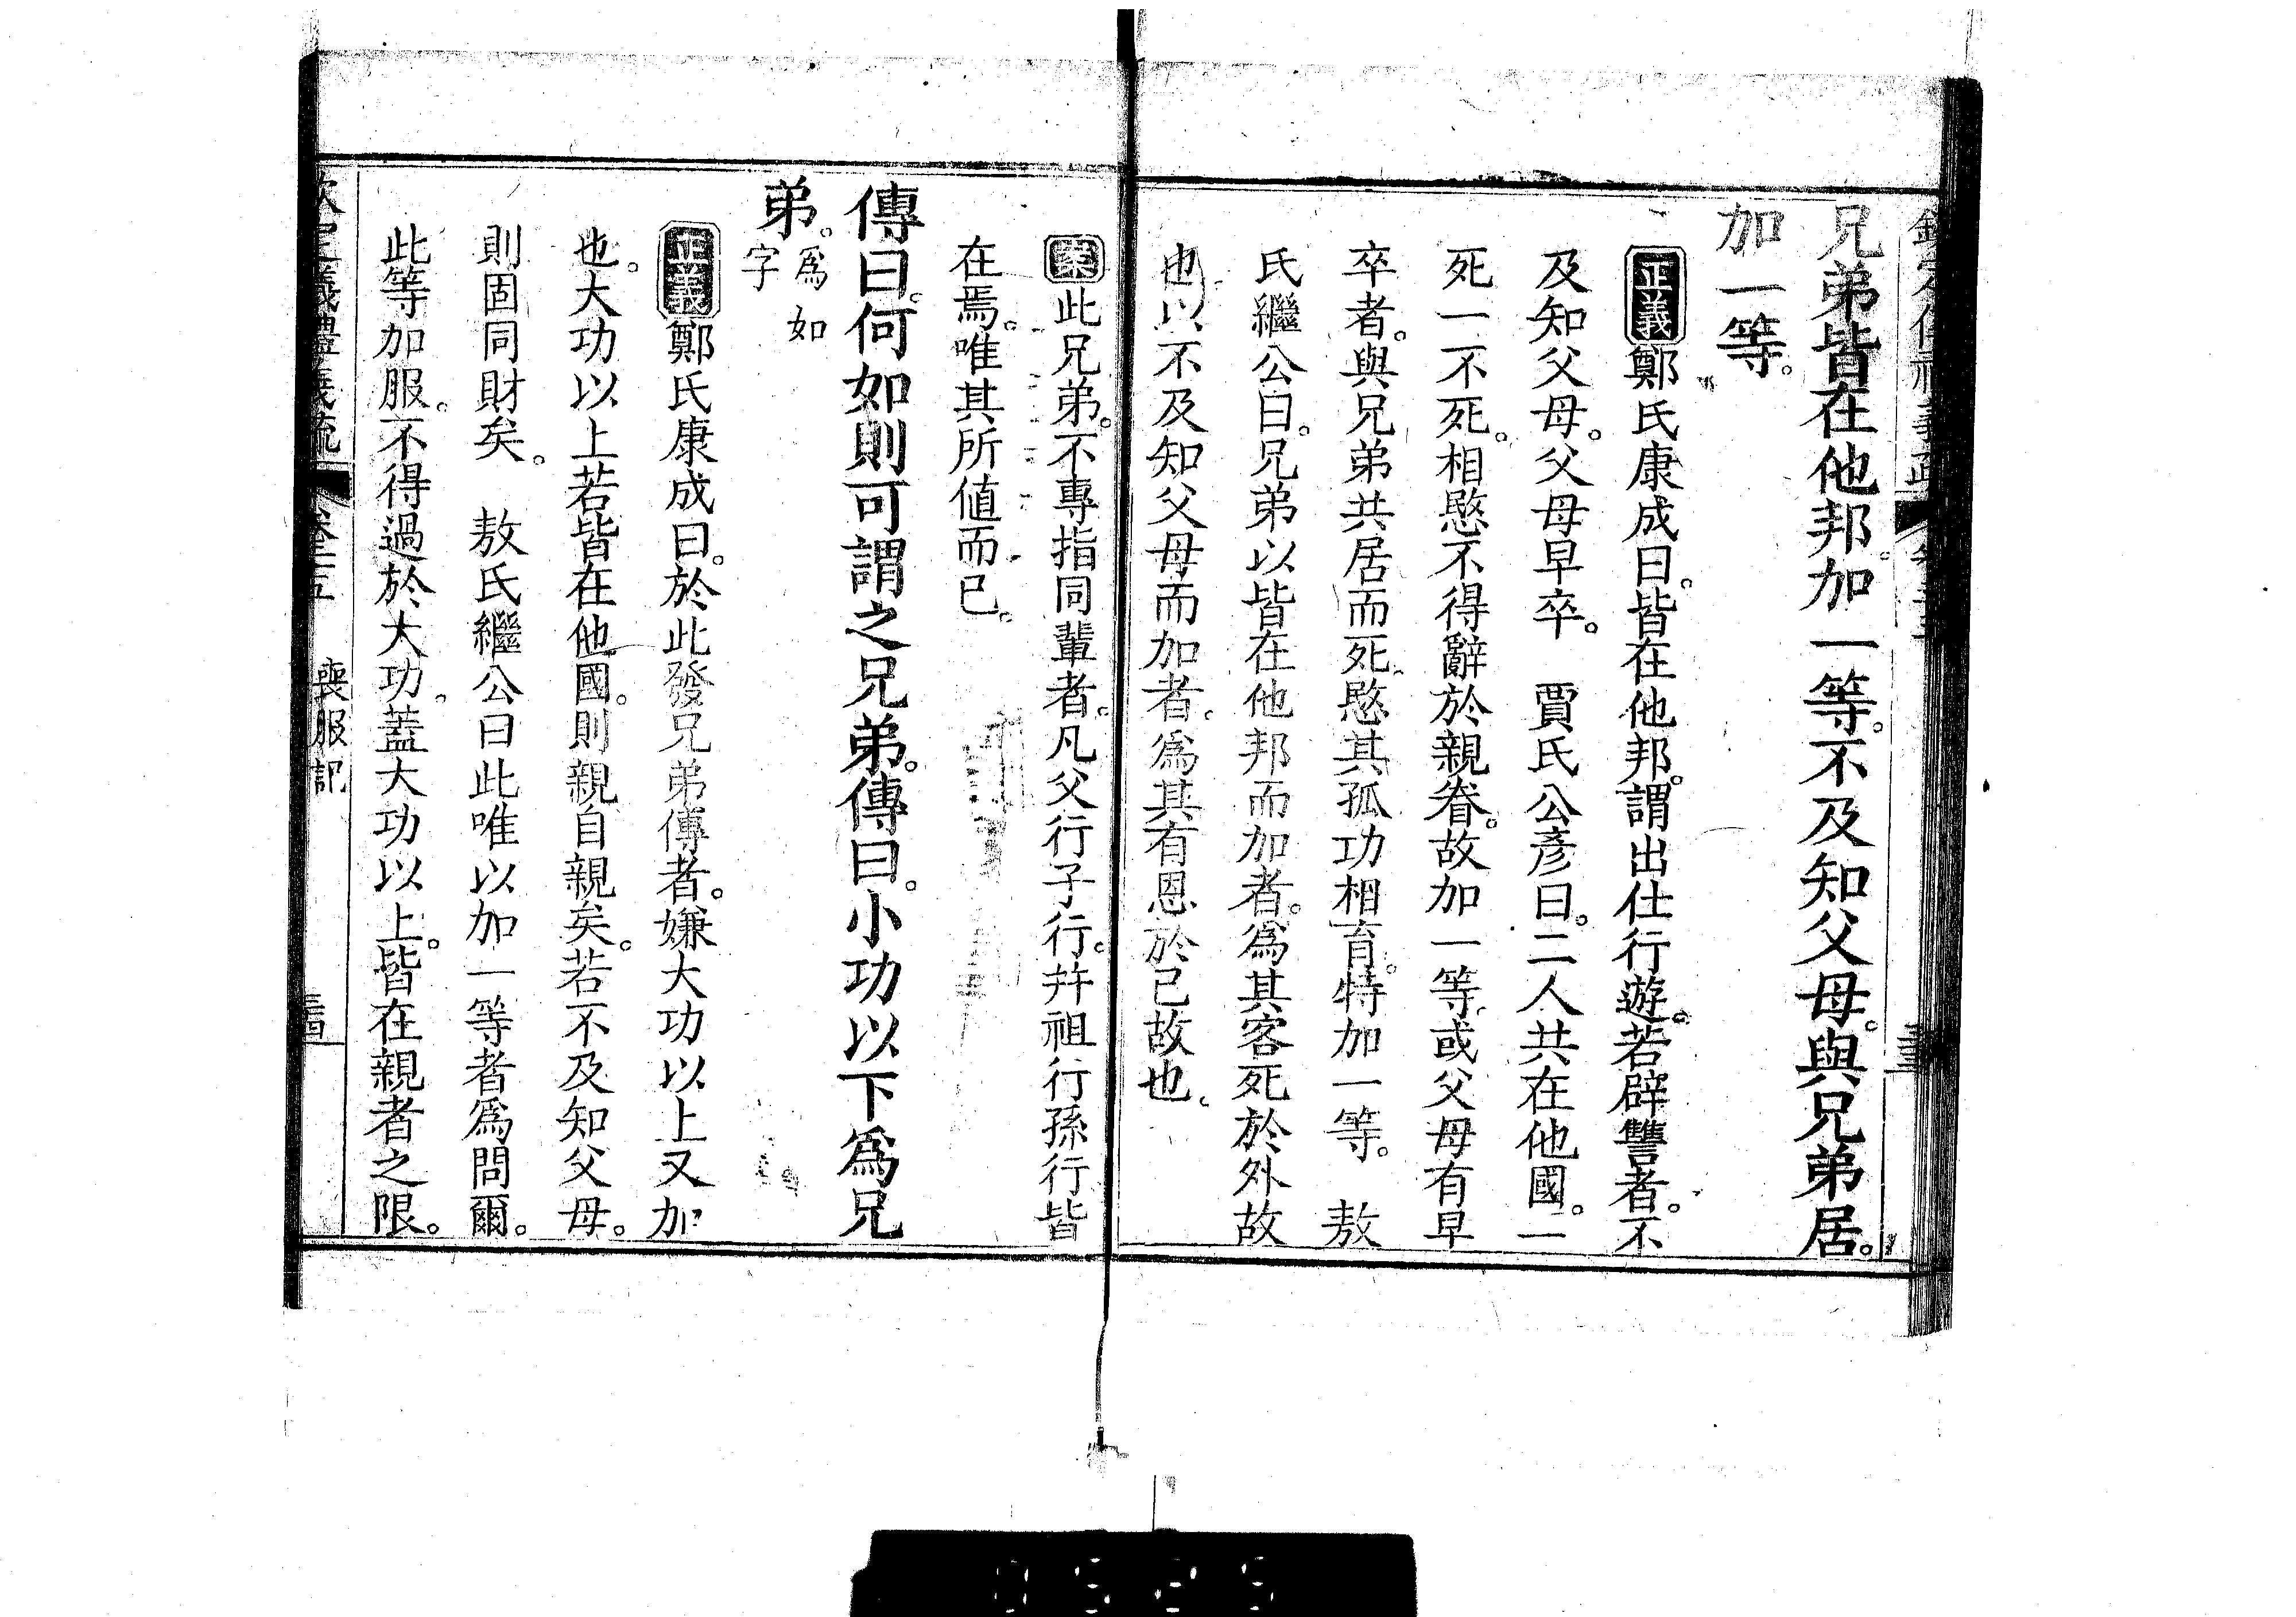 兄弟皆在他邦。加一等。不及知父母。與兄弟居。
加一等。
正義鄭氏康成曰。皆在他邦。謂出仕行遊。若辟讐者。不
及知父母。父母早卒。　賈氏公彥曰。二人共在他國。一
死一不死。相愍不得辭於親眷。故加一等。或父母有早
卒者。與兄弟共居而死。愍其孤功相育。特加一等。　敖
氏繼公曰。兄弟以皆在他邦而加者。爲其客死於外故
也。以不及知父母而加者。爲其有恩於已故也。
案此兄弟。不專指同輩者。凡父行子行。幷祖行孫行皆
在焉。唯其所値而已。
傳曰。何如則可謂之兄弟。傳曰。小功以下爲兄
弟。爲如字
正義鄭氏康成曰。於此發兄弟傳者。嫌大功以上又加
也。大功以上若皆在他國。則親自親矣。若不及知父母。
則固同財矣。　敖氏繼公曰此唯以加一等者爲問爾。
此等加服。不得過於大功。蓋大功以上。皆在親者之限。
欽定儀禮義疏　卷二五　喪服記